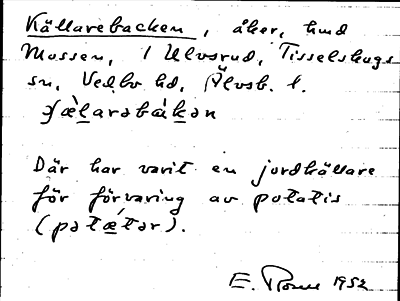 Källarebacken, åker, hmd
Mossen, 1 Ulvsrud, Tisselskogs
sn, Vedbo hd, Älvsb. l.
ɟæ̀larabà̱kən
Där har varit en jordkällare
för förvaring av potatis
(pətǽtər).
E. 1952